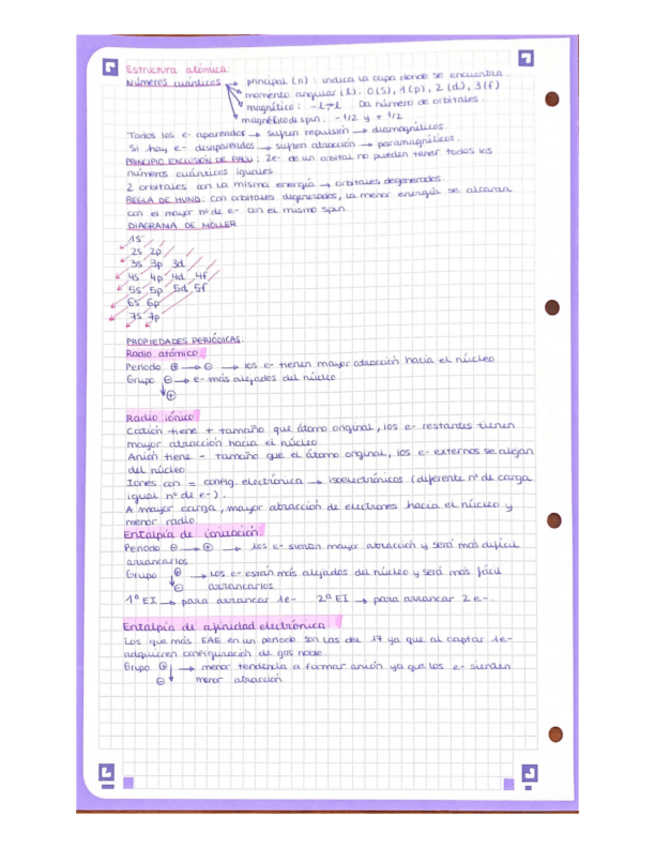 Estructura atómica:
Números cuánticos → principal (n) : indica la capa donde se encuentra
momento angular (l): 0(s), 1(p), 2(d), 3(f)
magnético: -l→l. Da número de orbitales.
magnético de spin: -1/2 y +1/2
Todos los e- apareador → sufren repulsión → diamagnéticos.
Si hay e- desapareados → sufren atracción → paramagnéticos.
PRINCIPIO EXCLUSIÓN DE PAULI: 2e- de un orbital no pueden tener todos los
números cuánticos iguales.
2 orbitales con la misma energía → orbitales degenerados.
REGLA DE HUND: Con orbitales degenerados, la menor energía se alcanza
con el mayor nº de e- con el mismo spin.
DIAGRAMA DE MÖLLER
1s
2s 2p
3s 3p 3d
4s 4p 4d 4f
5s 5p 5d 5f
6s 6p
7s 7p
PROPIEDADES PERIÓDICAS:
Radio atómico
Periodo ⊕ → ⊖ → los e- tienen mayor atracción hacia el núcleo
Grupo ⊖ → e- más alejados del núcleo
↓⊕
Radio iónico
Catión tiene + tamaño que átomo original, los e- restantes tienen
mayor atracción hacia el núcleo
Anión tiene - tamaño que el átomo original, los e- externos se alejan
del núcleo
Iones con = config. electrónica → isoelectrónicos (diferente nº de carga
igual nº de e-).
A mayor carga, mayor atracción de electrones hacia el núcleo y
menor radio.
Entalpía de ionización
Periodo ⊖ → ⊕ → los e- sienten mayor atracción y será más difícil
arrancarlos
Grupo ⊕ → los e- están más alejados del núcleo y será más fácil
↓⊖ arrancarlos
1ª EI → para arrancar 1e- 2ª EI → para arrancar 2 e-.
Entalpía de afinidad electrónica
Los que más EAE en un periodo son las del 17 ya que al captar 1e-
adquieren configuración de gas noble.
Grupo ⊕ → menor tendencia a formar anión ya que los e- sienten
⊖↓ menor atracción